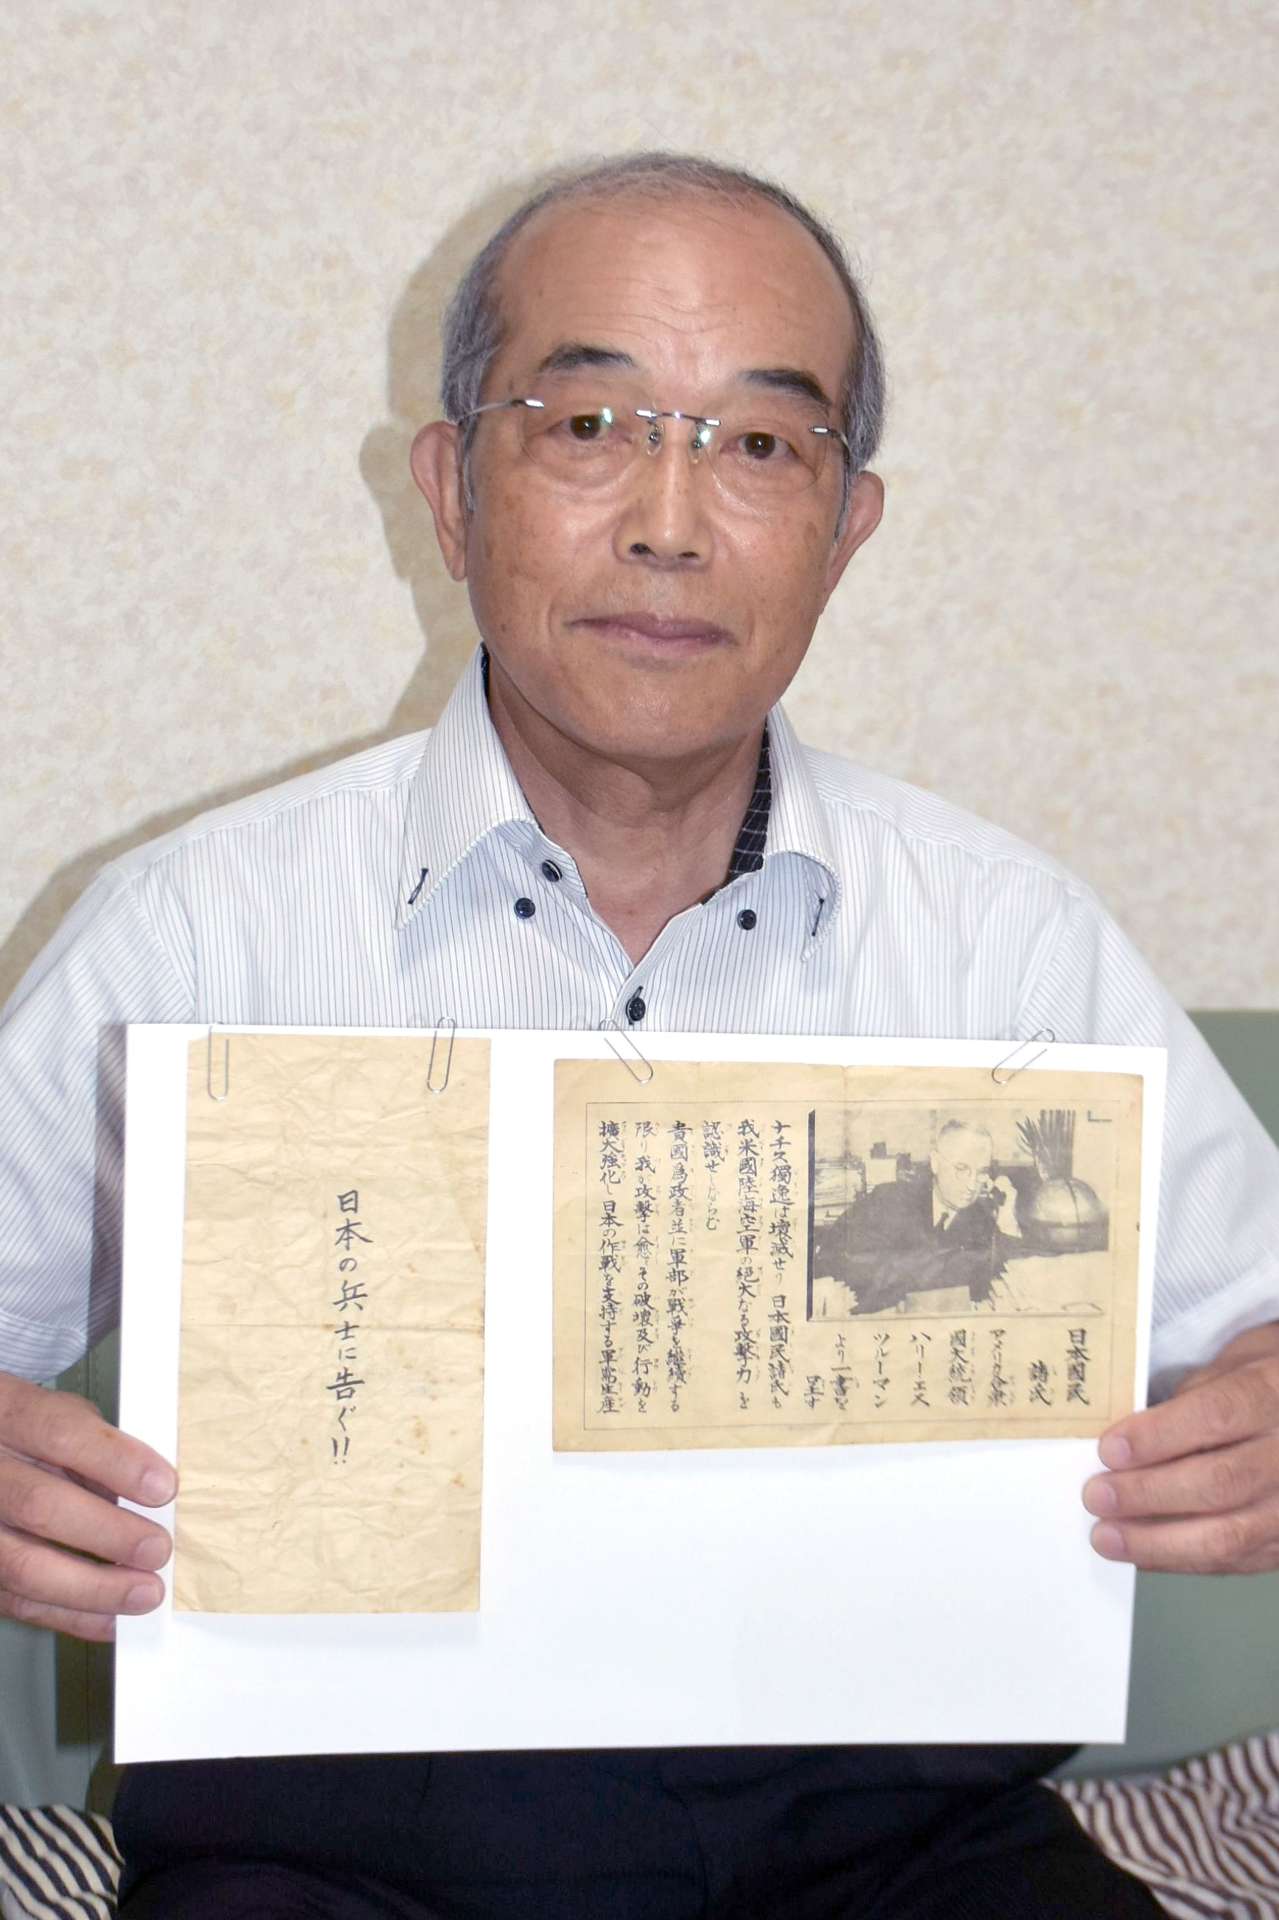 日本の兵士に告ぐ!!
日本國民
諸氏
アメリカ合衆
國大統領
ハリー・エス
ツルーマン
より一書を
呈す
ナチス獨逸は壊滅せり 日本國民諸氏も
我米國陸海空軍の絕大なる攻擊力を
認識せしならむ
貴國爲政者並に軍部が戰爭を繼續する
限り我が攻擊は愈〻その破壊及び行動を
擴大強化し日本の作戰を支持する軍需生產